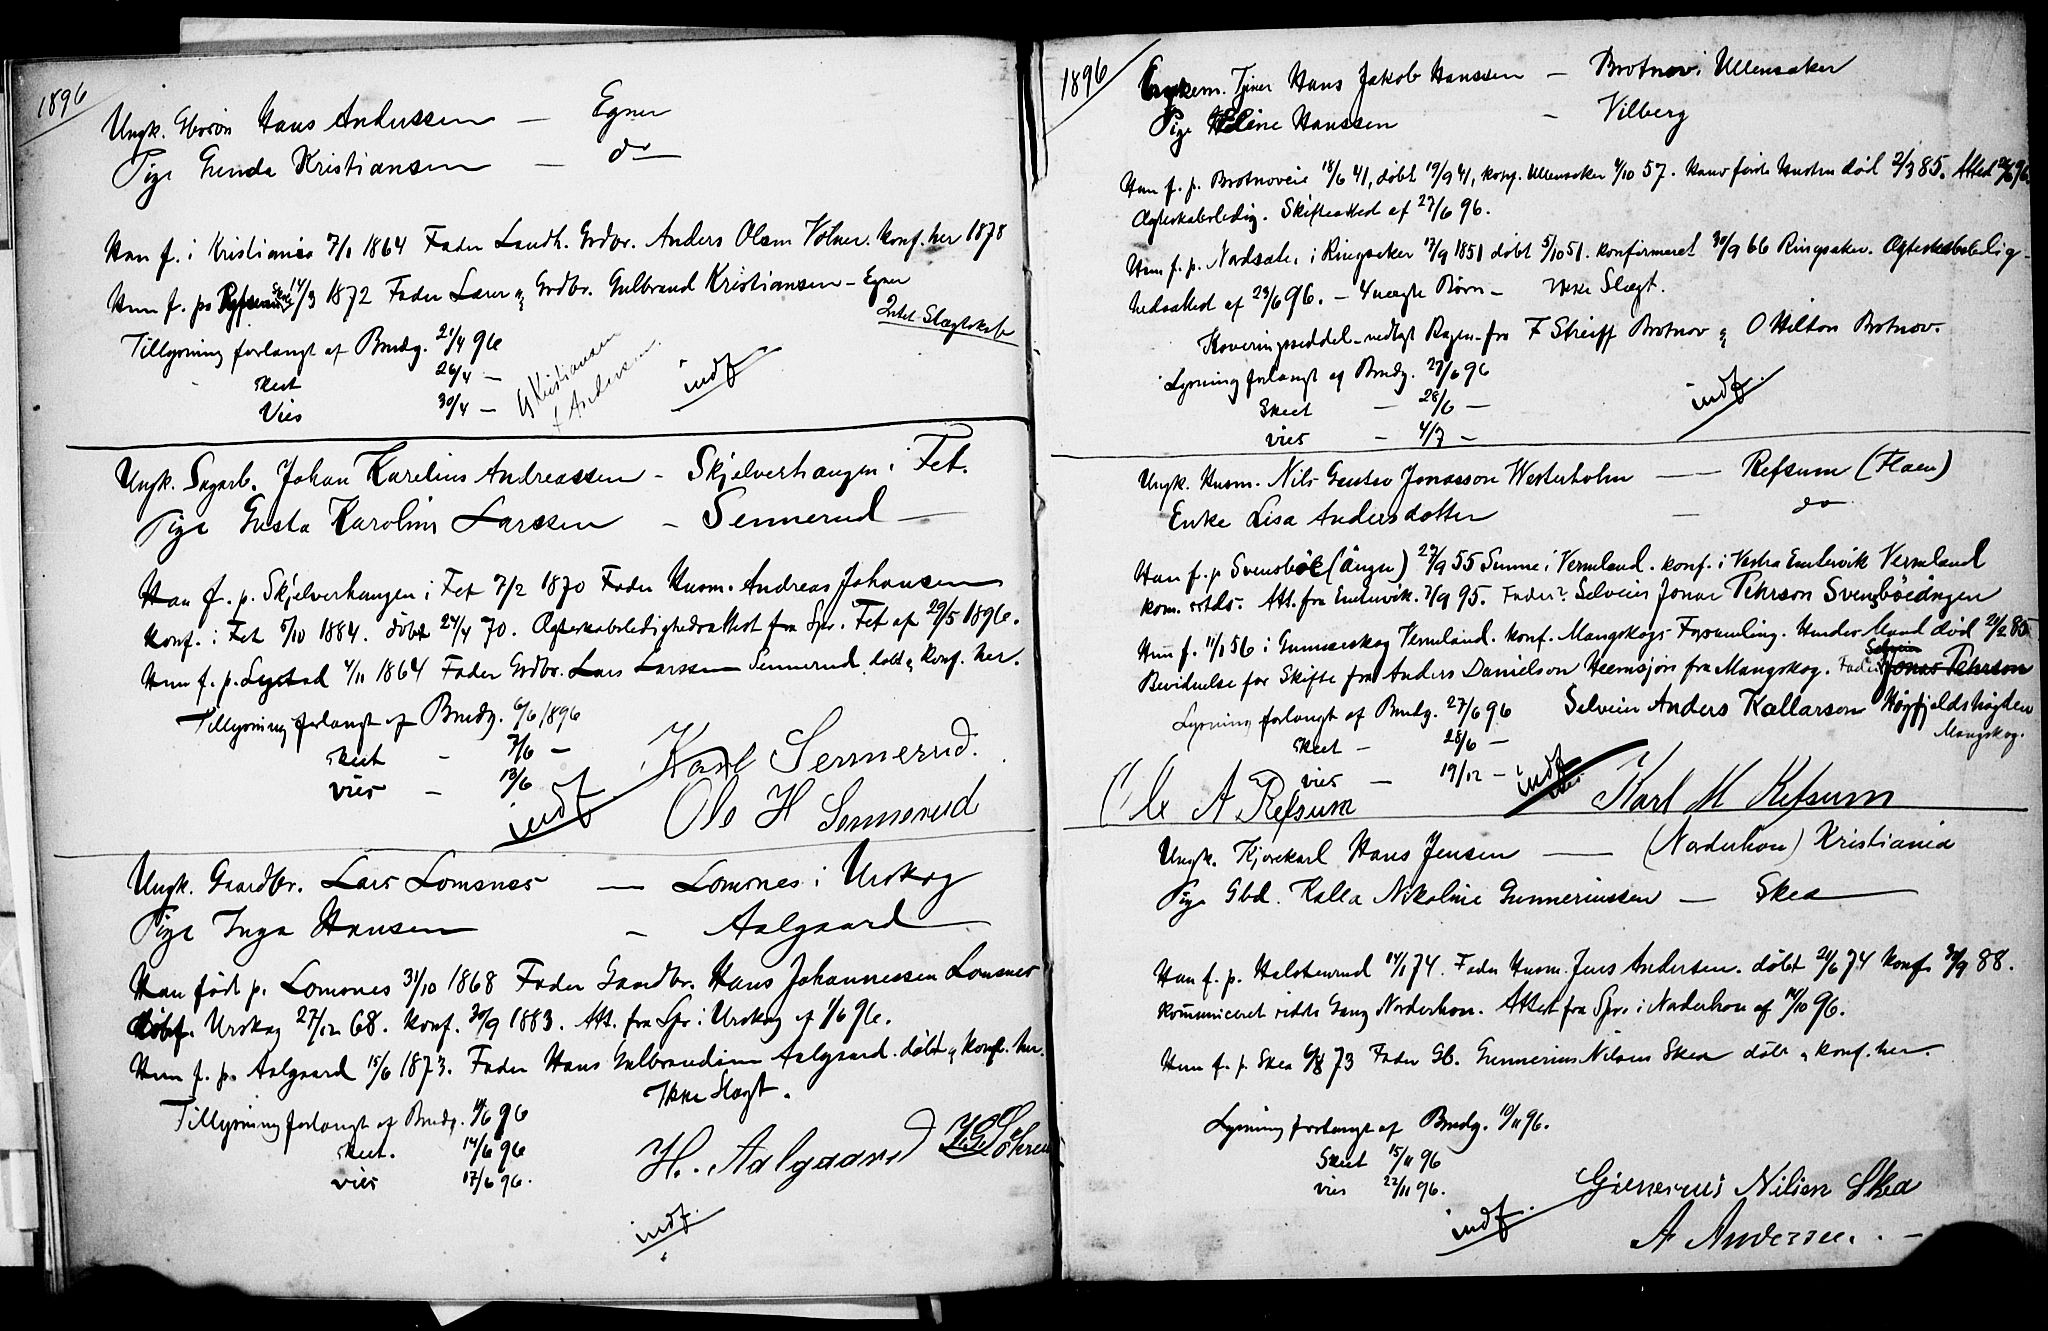 1896
Ungk. Gbrsøn Hans Anderssen — Egner
Pige Gunda Kristiansen — do
Han f. i Kristiania 7/1 1864 Fader Landh. Grdbr. Anders Olsen Volner. Konf. her 1878
Hun f. paa 14/3 1872 Fader Lærer & Grdbr. Gulbrand Kristiansen - Egner
Intet Slægtskab
Tillysning forlangt af Brudg. 21/4 96
Skeet 26/4 —
Vies 30/4 —
G Kristiansen
Andersen.
indf
Ungk. Sagarb. Johan Karelius Andreassen — Skjelverhaugen i Fet.
Pige Gusta Karoline Larssen — Sennerud
Han f. p. Skjelverhaugen i Fet 7/2 1870 Fader Husm. Andreas Johansen
Konf. i Fet 5/10 1884. døbt 24/4 70. Ægteskabsledighedsattest fra Spr. i Fet af 29/5 1896.
Hun f. p. Lystad 4/11 1864 Fader Grdbr. Lars Larssen Sennerud døbt & konf. her.
Tillysning forlangt af Brudg. 6/6 1896
Skeet — 7/6 —
vies — 13/6
Karl Sennerud.
Ole H Sennerud
indf
Ungk. Gaardbr. Lars Lomsnes — Lomsnes i Urskog
Pige Inga Hansen — Aalgaard
Han født p. Lomsnes 31/10 1868 Fader Gaardbr. Hans Johannessen Lomsnes
døbt. Urskog 27/12 68. Konf. 30/9 1883. Att. fra Spr i Urskog af 1/6 96.
Hun f. p. Aalgaard 15/6 1873. Fader Hans Gulbrandsen Aalgaard. døbt & konf. her.
Ikke Slægt.
Tillysning forlangt af Brudg. 11/6 96
Skeet. 14/6 96
vies 17/6 96.
H. Aalgaard
indf.
1896
Enkem. Tjener Hans Jakob Hanssen — Brotnov i Ullensaker
Pige Heline Hanssen — Vilberg
Han f. p. Brotnoveie 18/6 41, døbt 19/9 41, konf. Ullensaker 4/10 57. Hans første Hustru død 2/3 85. Attest 26/6 96.
Ægteskabsledig. Skifteattest af 27/6 96.
Hun f. p. Nordsætr. i Ringsaker 17/9 1851 døbt 5/10 51. konfirmeret 30/9 66 Ringsaker. Ægteskabsledig-
hedsattest af 23/6 96. — 4 uægte Børn — Ikke Slægt.
Kaveringsseddel — vedlagt Bogen — fra F Streiff Brotnov & O Hilton Brotnov.
Lysning forlangt af Brudg. 27/6 96
Skeet — 28/6 —
vies — 4/7 —
indf.
Ungk. Husm. Nils Gustav Jonasson Westerholm — Refsum (Flaen)
Enke Lisa Andersdotter — do
Han f. p. Svensbøl (Ånger) 27/9 55 Sunne i Vermland. konf. i Vestra Emtervik Vermland
kom. sstds. Att. fra Emtervik. 7/9 95. Fader? Selveier Jonas Pehrson
Hun f. 11/1 56 i Gunnarskog Vermland. konf. Mangskogs Forsamling. Hendes Mand død 20/2 85
Bevidnelse for Skifte fra Anders Danielson Heemsjön fra Mangskog. Fader Jonas Pehrson
Selveier Anders Kallarson Högfjeldshögden
Mangskog.
Lysning forlangt af Brudg. 27/6 96
Skeet — 28/6 —
vies — 19/12 —
indf
Ole A Refsum
Karl M Refsum
Ungk. Kjørekarl Hans Jensen — (Norderhou) Kristiania
Pige Gbd. Kalla Nikoline Gunneriussen — Skea
Han f. p. Halstenrud 14/1 74. Fader Husm. Jens Andersen. døbt 21/6 74 Konf. 30/9 88.
kommuniceret sidste Gang Norderhou. Attest fra Spr. i Norderhou af 14/10 96.
Hun f. p. Skea 6/8 73 Fader Gb. Gunnerius Nilsen Skea døbt & konf. her.
Lysning forlangt af Brudg. 10/11 96.
Skeet 15/11 96
vies 22/11 96.
Gunnerius Nilsen Skea
A Andersen.
indf.